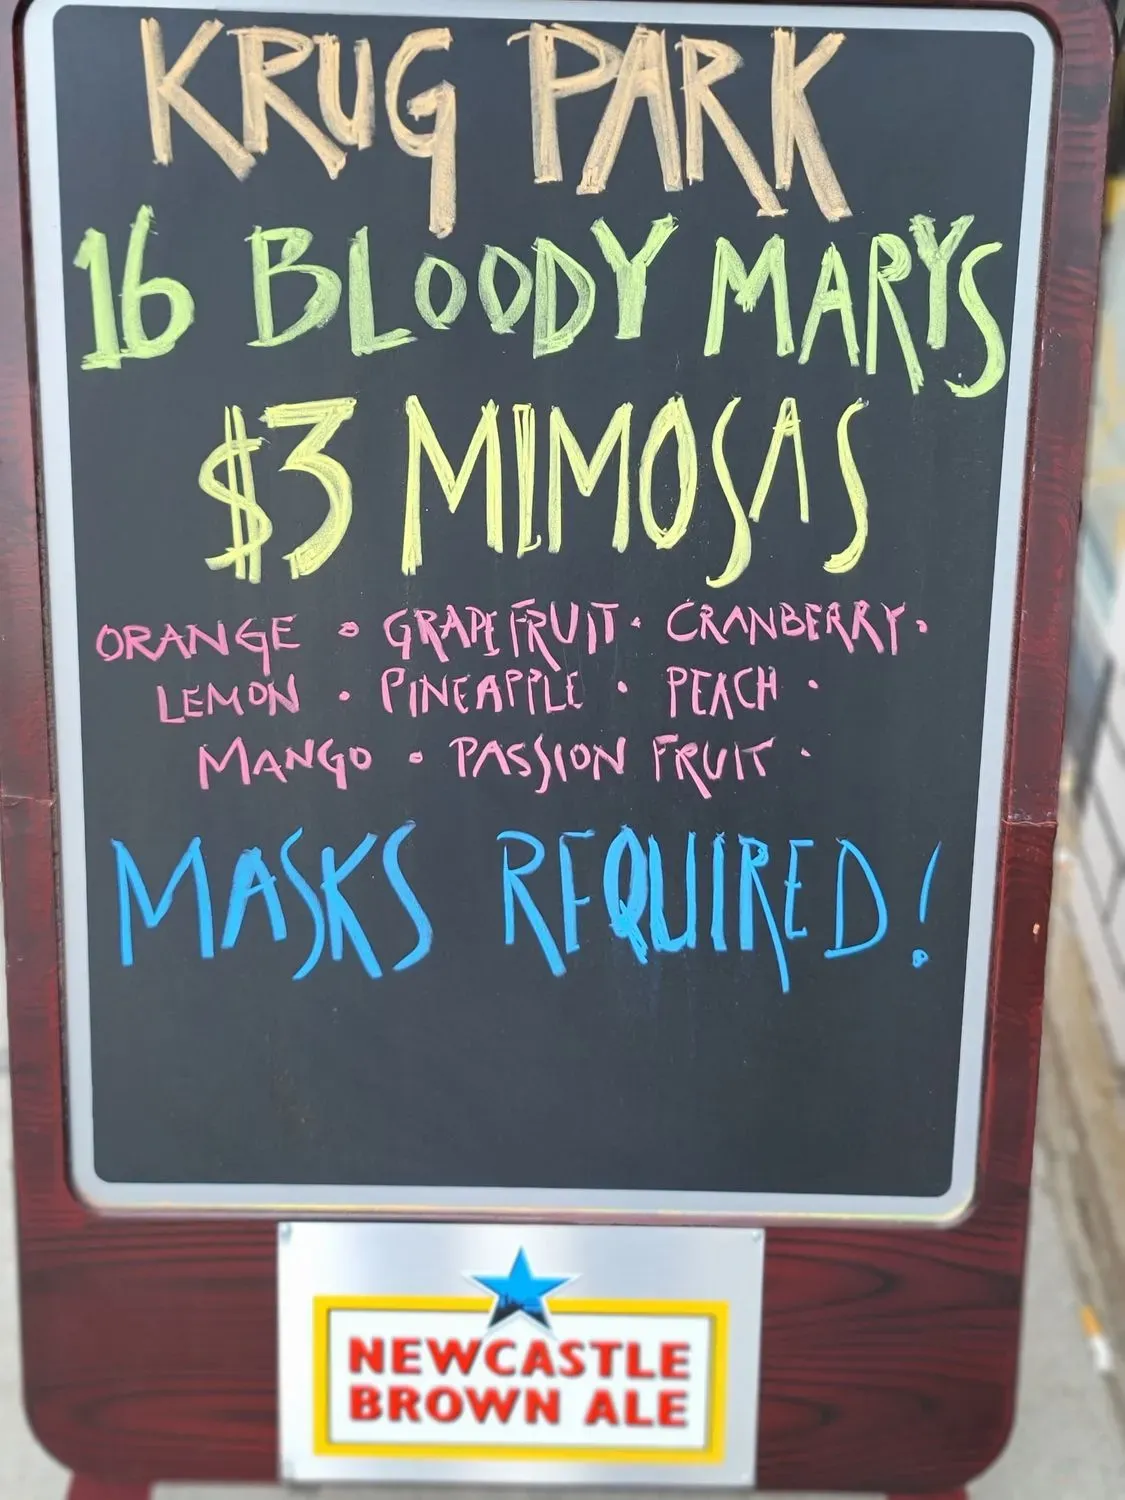 KRUG PARK
16 BLOODY MARYS
$3 MIMOSAS
ORANGE • GRAPEFRUIT • CRANBERRY •
LEMON • PINEAPPLE • PEACH •
MANGO • PASSION FRUIT •
MASKS REQUIRED!
NEWCASTLE
BROWN ALE